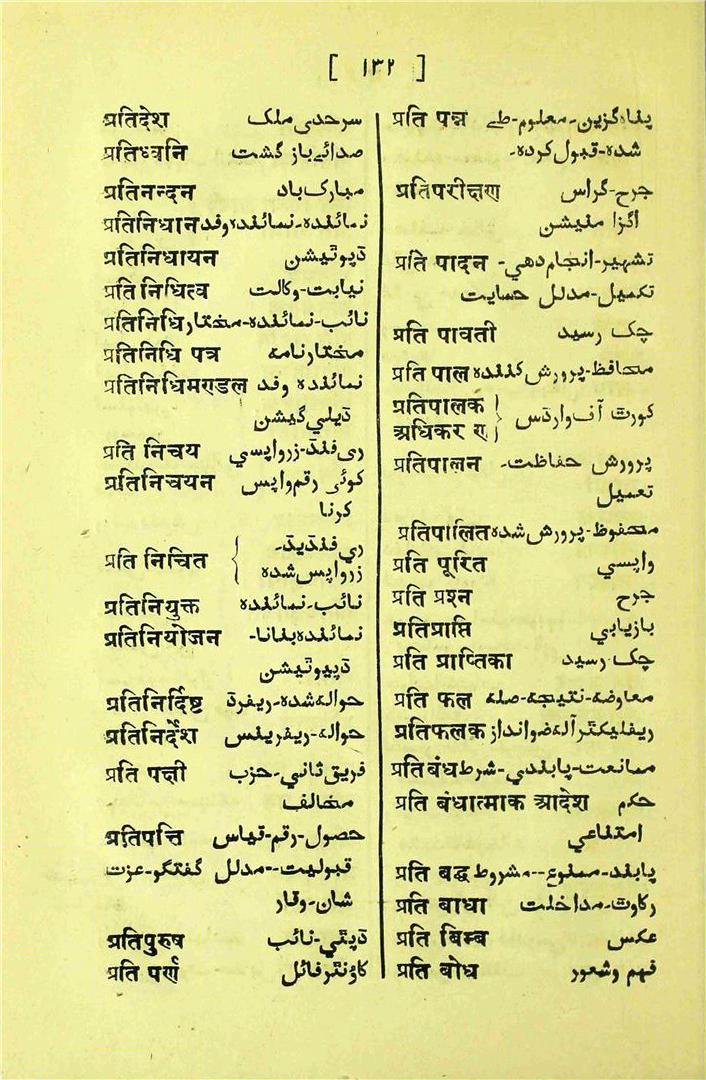 [ ۱۳۲ ]
प्रतिदेश سرحدی ملک
प्रतिध्वनि صدائے باز گشت
प्रतिनन्दन مبارک باد
प्रतिनिधान نمائندہ-نمائندہ وفد
प्रतिनिधायन ڈپوٹیشن
प्रति निधित्व نیابت-وکالت
प्रतिनिधि نائب-نمائندہ-مختار
प्रतिनिधि पत्र مختار نامہ
प्रतिनिधिमण्डल نمائندہ وفد
ڈیلی گیشن
प्रति निचय ری فنڈ-زر واپسی
प्रतिनिचयन کوئی رقم واپس
کرنا
प्रति निचित { ری فنڈیڈ-
زر واپس شدہ
प्रतिनियुक्त نائب-نمائندہ
प्रतिनियोजन نمائندہ بنانا-
ڈیپیوٹیشن
प्रतिनिर्दिष्ट حوالہ شدہ-ریفرڈ
प्रतिनिर्देश حوالہ-ریفرینس
प्रति पक्षी فریق ثانی-حزب
مخالف
प्रतिपत्ति حصول-رقم-قیاس
قبولیت--مدلل گفتگو-عزت
شان-وقار
प्रतिपुरुष ڈپٹی-نائب
प्रति पर्ण کاؤنٹر فائل
प्रति पन्न پناہ گزین-معلوم-طے
شدہ-قبول کردہ-
प्रतिपरीक्षण جرح-کراس
اگزا منیشن
प्रति पादन تشہیر-انجام دھی-
تکمیل-مدلل حمایت
प्रति पावती چک رسید
प्रति पाल محافظ-پرورش کنندہ
प्रतिपालक } کورٹ آف وارڈس
अधिकर ण
प्रतिपालन پرورش حفاظت-
تعمیل
प्रतिपालित محفوظ-پرورش شدہ
प्रति पूरित واپسی
प्रति प्रश्न جرح
प्रतिप्राप्ति بازیابی
प्रति प्राप्तिका چک رسید
प्रति फल معاوضہ-نتیجہ-صلہ
प्रतिफलक ریفلیکٹر آلہ ضو انداز
प्रति बंध ممانعت-پابندی-شرط
प्रति बंधात्माक आदेश حکم
امتناعی
प्रति बद्ध پابند-ممنوع--مشروط
प्रति बाधा رکاوٹ-مداخلت
प्रति बिम्ब عکس
प्रति बोध فہم و شعور